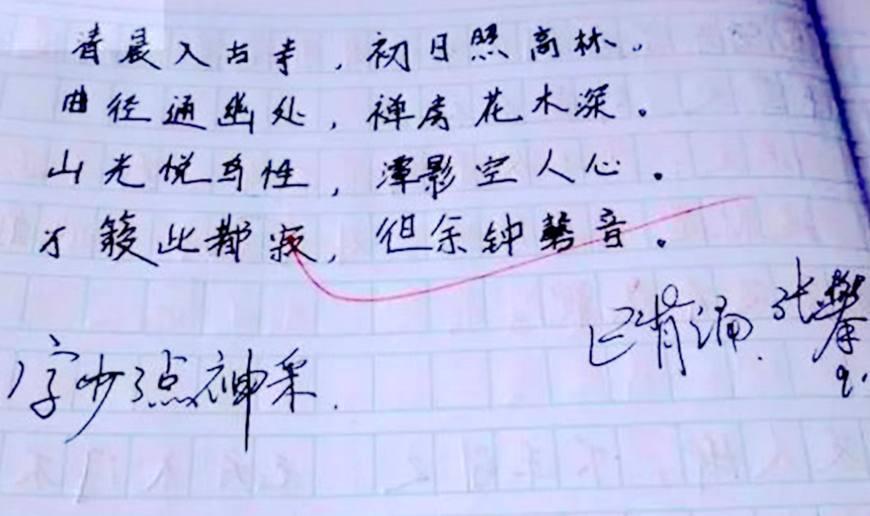 清晨入古寺，初日照高林。
曲径通幽处，禅房花木深。
山光悦鸟性，潭影空人心。
万籁此都寂，但余钟磬音。
已背诵. 张攀
字少了点神采.